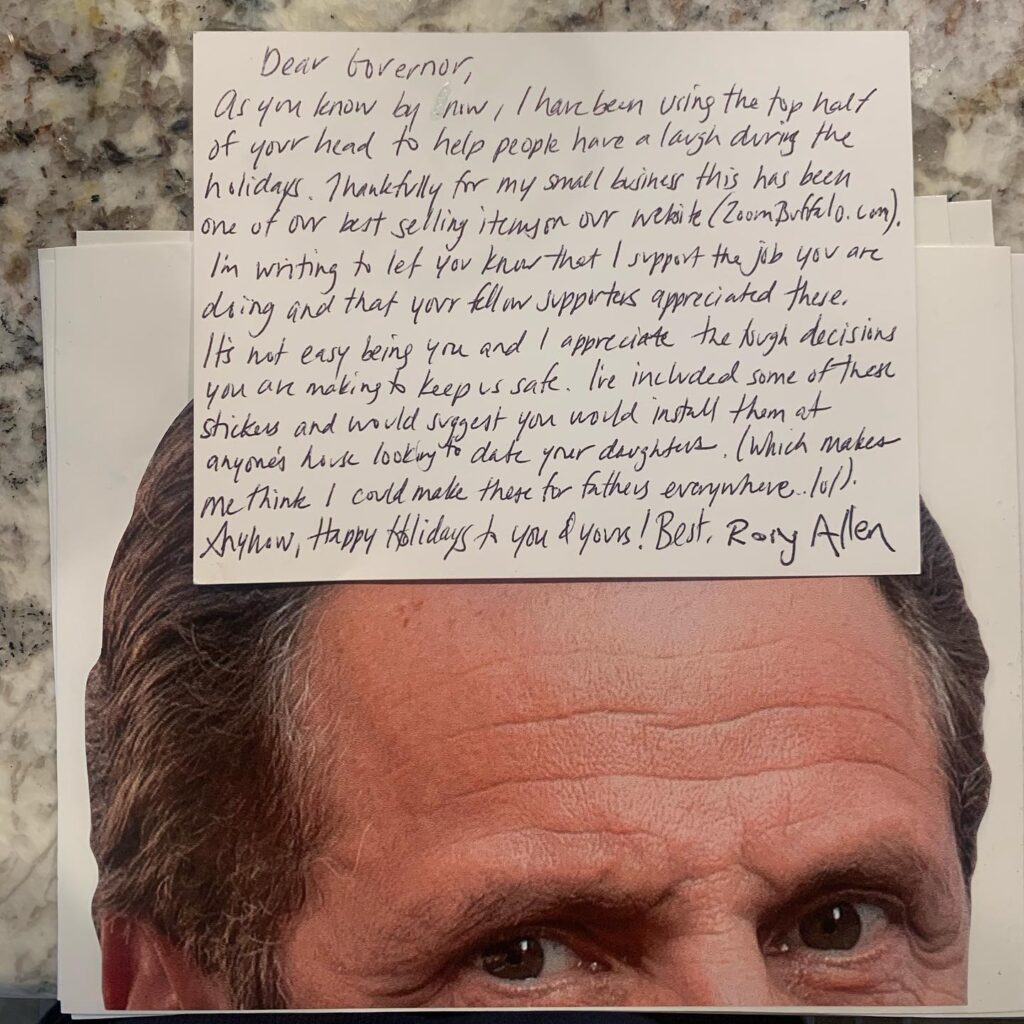 Dear Governor,
As you know by now, I have been using the top half
of your head to help people have a laugh during the
holidays. Thankfully for my small business this has been
one of our best selling items on our website (ZoomBuffalo.com).
I'm writing to let you know that I support the job you are
doing and that your fellow supporters appreciated these.
It's not easy being you and I appreciate the tough decisions
you are making to keep us safe. I've included some of these
stickers and would suggest you would install them at
anyone's house looking to date your daughters. (Which makes
me think I could make these for fathers everywhere..lol).
Anyhow, Happy Holidays to you & yours! Best, Rory Allen